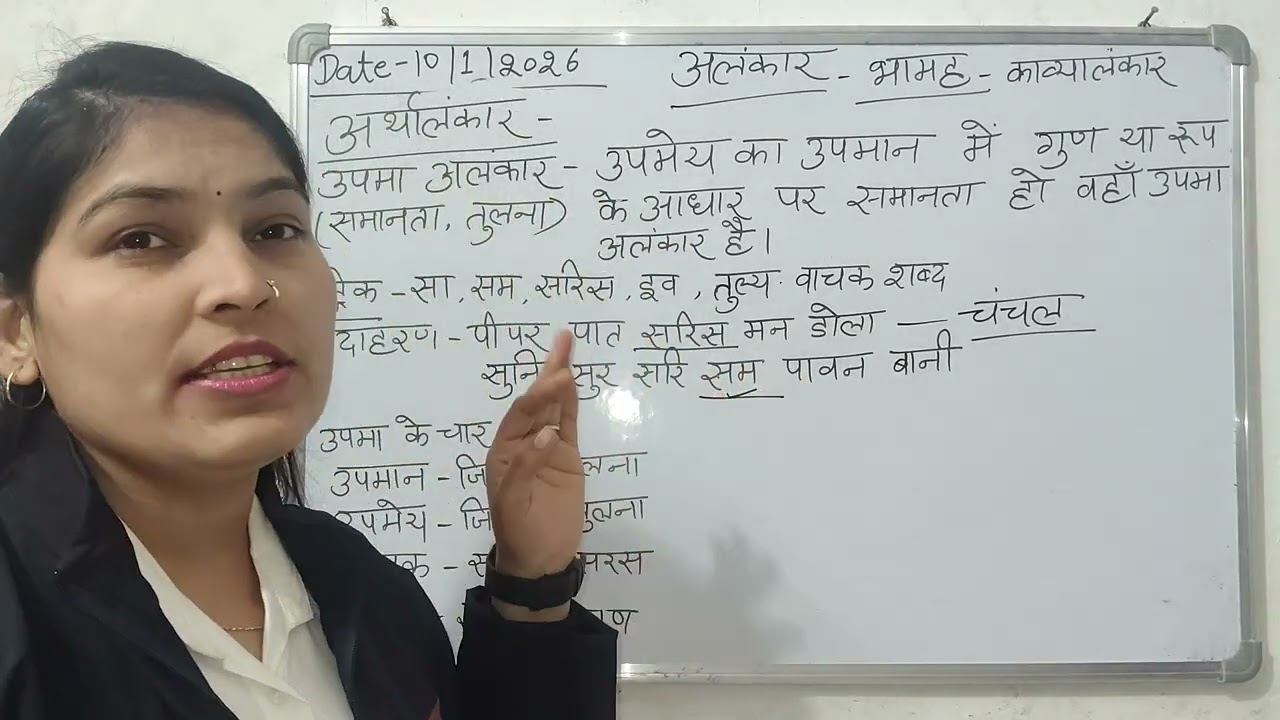 Date-10/1/2026 अलंकार - भामह - काव्यालंकार
अर्थालंकार -
उपमा अलंकार - उपमेय का उपमान में गुण या रूप
(समानता, तुलना) के आधार पर समानता हो वहाँ उपमा
अलंकार है।
- सा, सम, सरिस, इव, तुल्य. वाचक शब्द
- पीपर पात सरिस मन डोला — चंचल
सुनि सुर सरि सम पावन बानी
उपमा के चार
उपमान -
उपमेय - तुलना
सरस